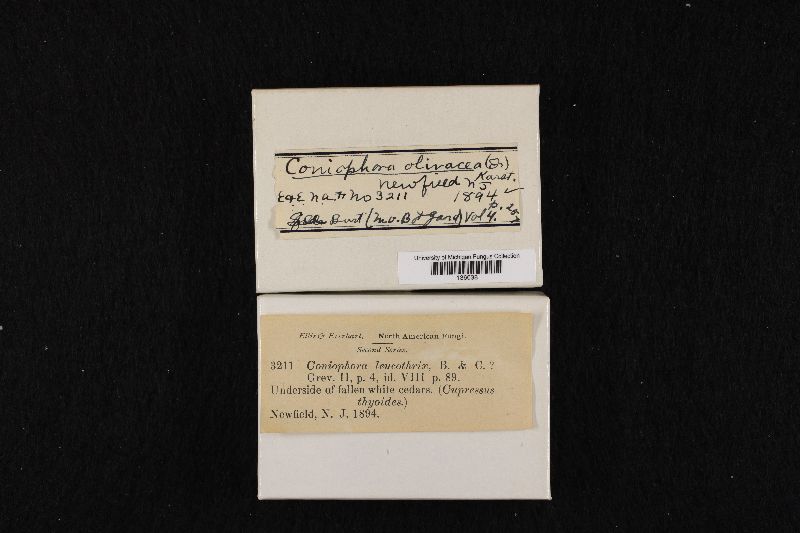 Coniophora olivacea (Fr)
Karst.
Newfield NJ
E&E N.A.F. No 3211 1894 ✓
Burt (Mo. Bot Gard) Vol 4. p.
University of Michigan Fungus Collection
Ellis & Everhart, North American Fungi.
Second Series.
3211 Coniophora leucothrix, B. & C.?
Grev. II, p. 4, id. VIII p. 89.
Underside of fallen white cedars. (Cupressus
thyoides.)
Newfield, N. J, 1894.